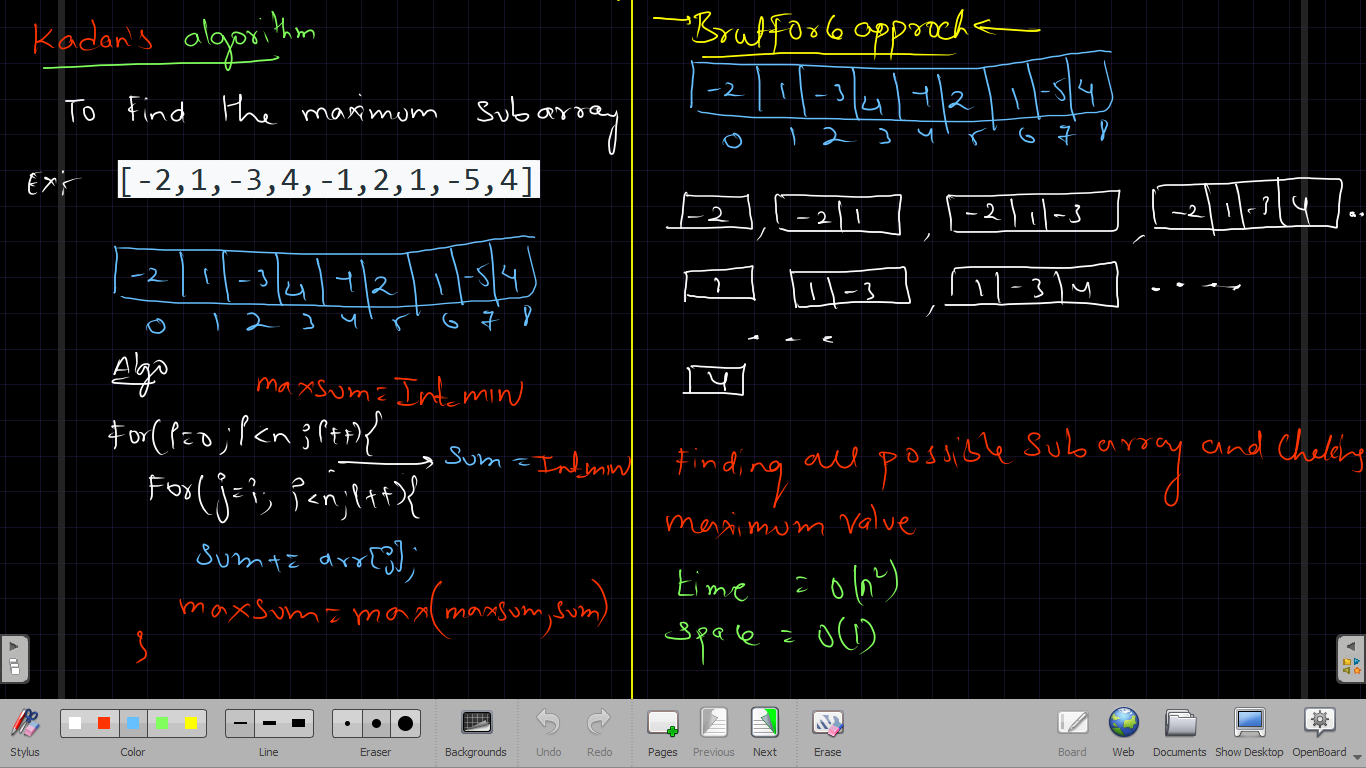 Kadan's algorithm
To Find the maximum Subarray
Ex:-
[-2,1,-3,4,-1,2,1,-5,4]
-2 1 -3 4 -1 2 1 -5 4
0 1 2 3 4 5 6 7 8
Algo
maxsum = Int_min
For(i=0; i<n; i++){
sum = Int_min
For(j=i; j<n; i++){
sum+= arr[j];
maxsum = max(maxsum, sum)
}
Approch
-2 1 -3 4 -1 2 1 -5 4
0 1 2 3 4 5 6 7 8
-2 , -2 1 , -2 1 -3 , -2 1 -3 4 ..
1 1 -3 , 1 -3 4 .....
...
4
Finding all possible Subarray and
maximum value
time = O(n²)
Space = O(1)
Stylus
Color
Line
Eraser
Backgrounds
Undo
Redo
Pages
Previous
Next
Erase
Board
Web
Documents
Show Desktop
OpenBoard